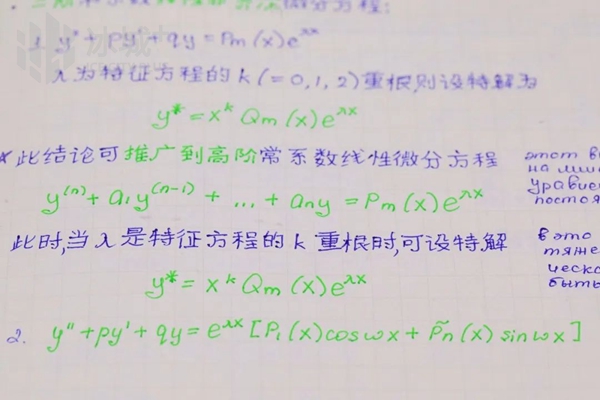 二阶常系数线性非齐次微分方程:
1. y″ + py′ + qy = Pm(x)e^λx
λ为特征方程的k(=0,1,2)重根,则设特解为
y* = x^k Qm(x)e^λx
* 此结论可推广到高阶常系数线性微分方程
y^(n) + a₁y^(n-1) + ... + any = Pm(x)e^λx
此时,当λ是特征方程的k重根时,可设特解
y* = x^k Qm(x)e^λx
2. y″ + py′ + qy = e^λx [Pl(x)cosωx + P̃n(x) sinωx]
этот
на
в это
тяже
ческо
быть
冰城+